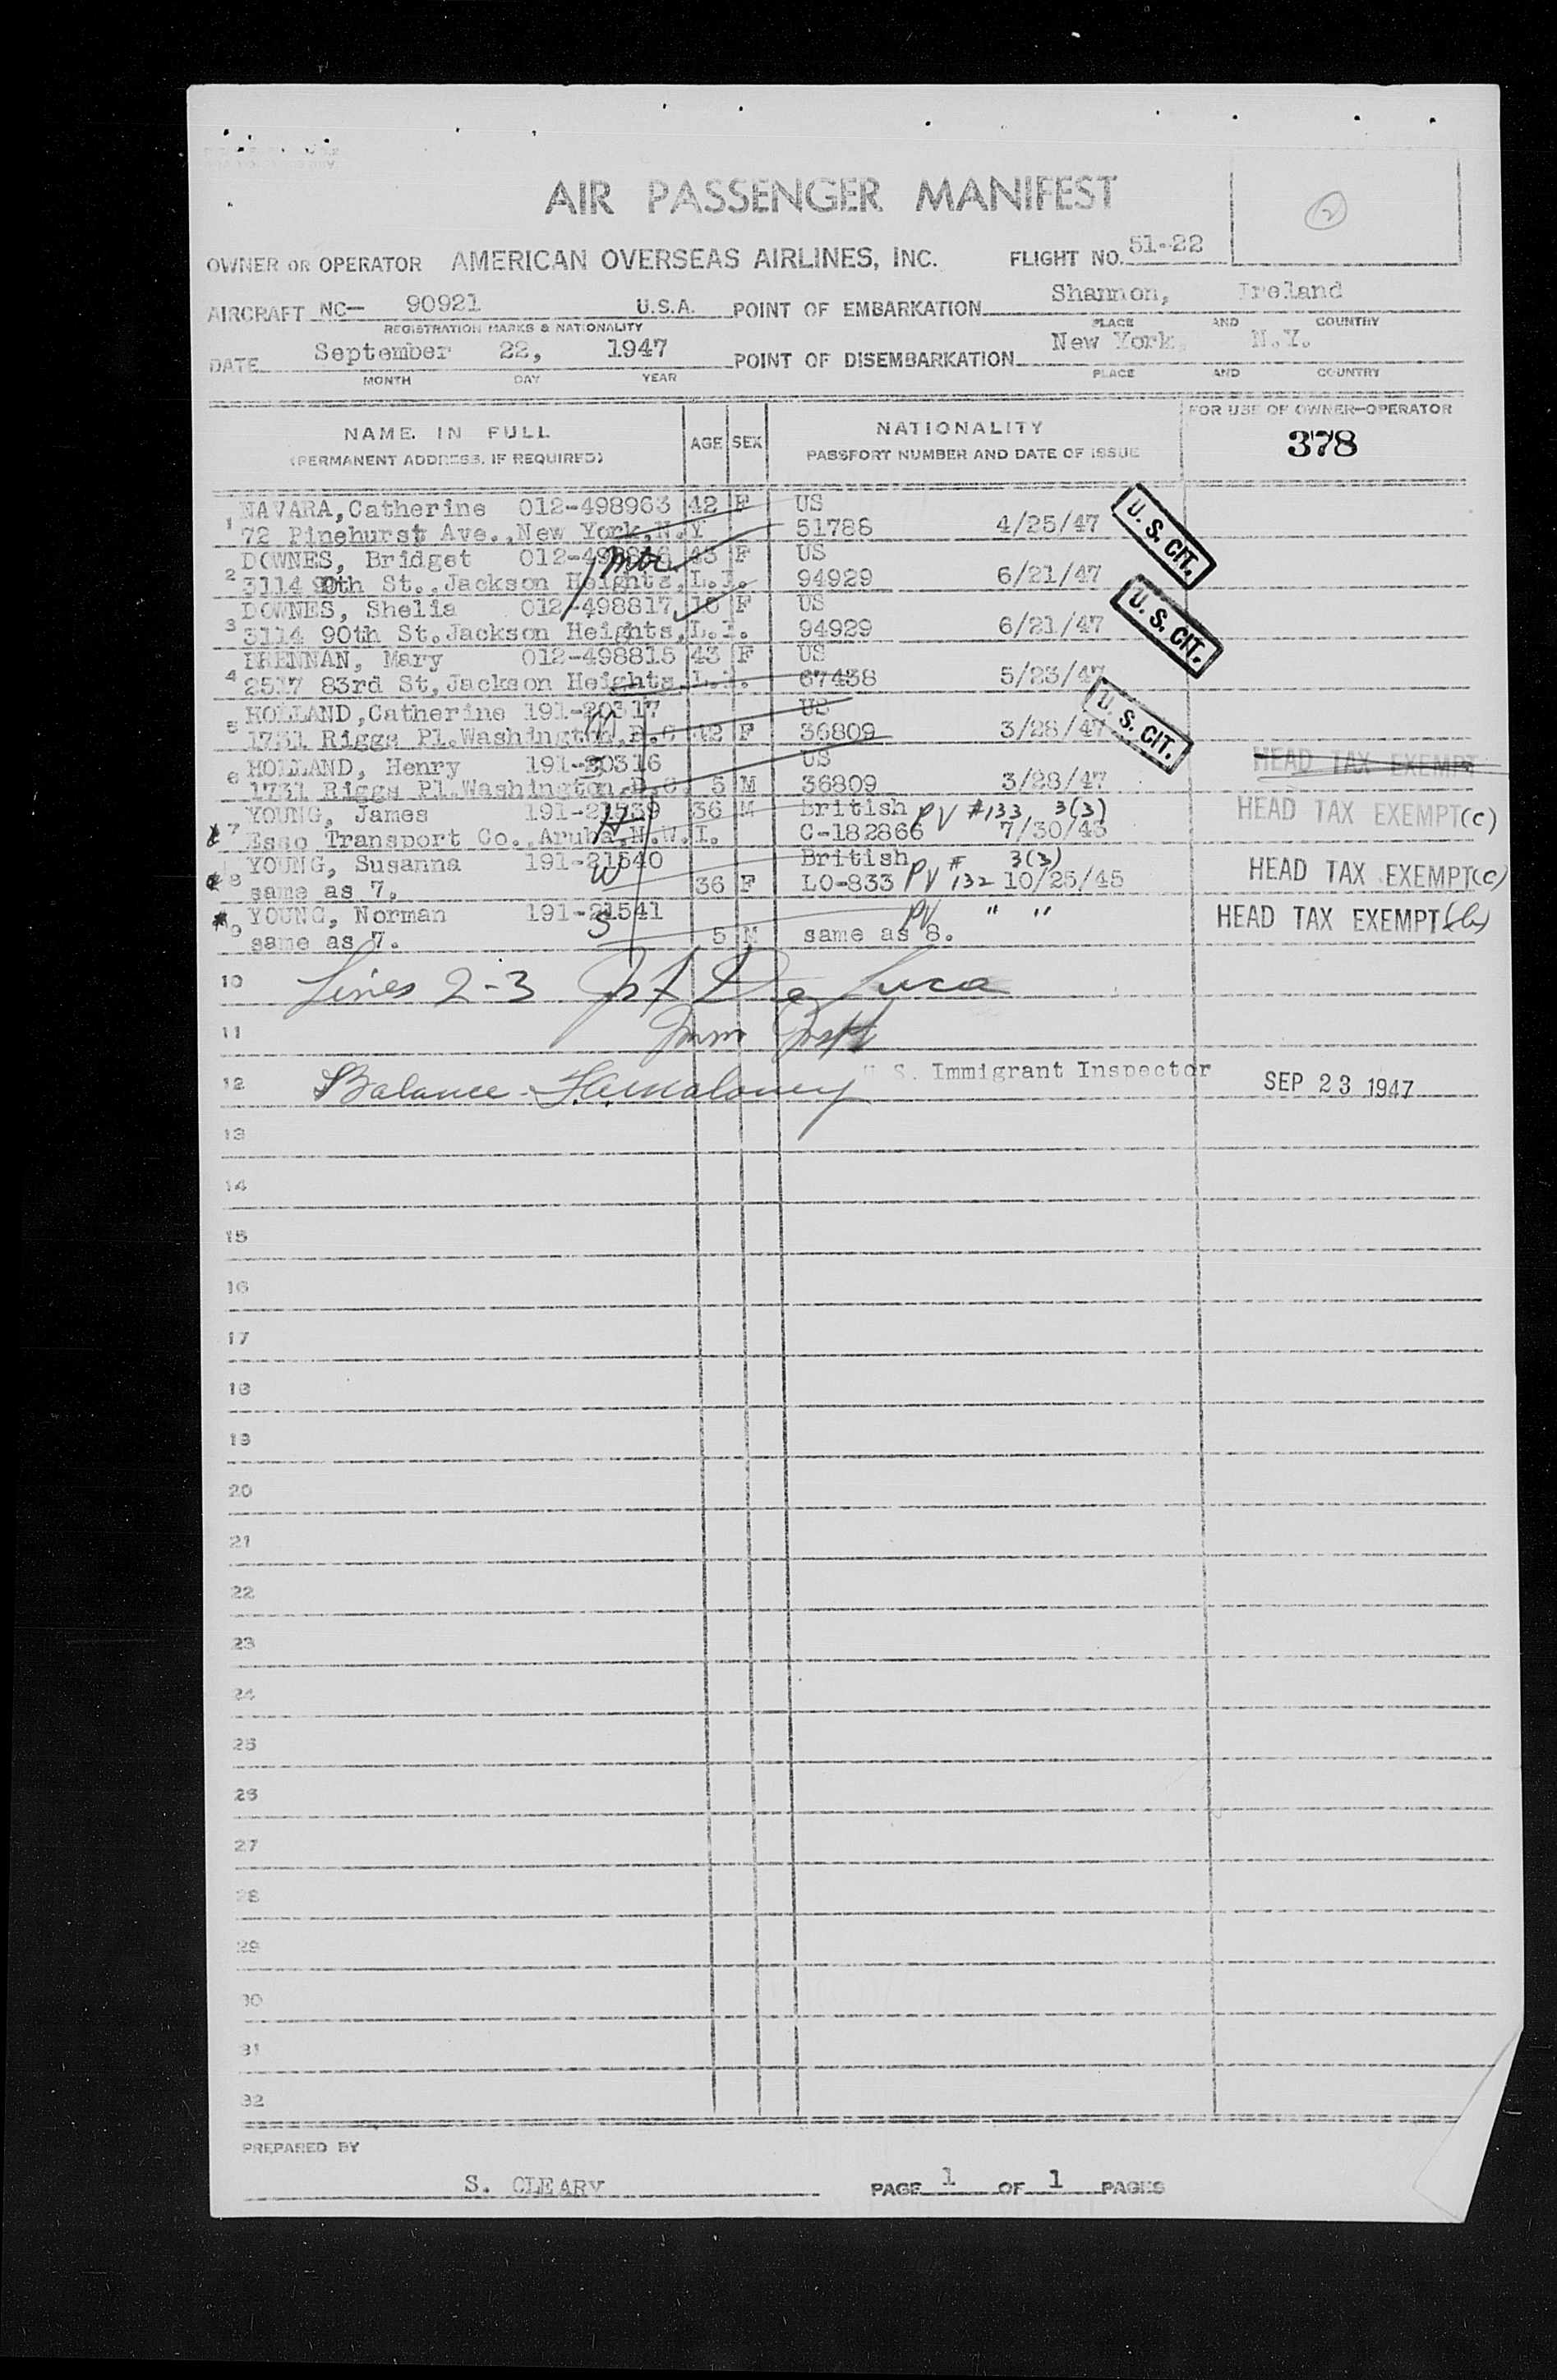 AIR PASSENGER MANIFEST
2
OWNER OR OPERATOR AMERICAN OVERSEAS AIRLINES, INC. FLIGHT NO. 51-22
AIRCRAFT NC- 90921 U.S.A. POINT OF EMBARKATION Shannon, Ireland
REGISTRATION MARKS & NATIONALITY PLACE AND COUNTRY
DATE September 22, 1947 POINT OF DISEMBARKATION New York, N.Y.
MONTH DAY YEAR PLACE AND COUNTRY
NAME IN FULL AGE SEX NATIONALITY FOR USE OF OWNER-OPERATOR
(PERMANENT ADDRESS, IF REQUIRED) PASSPORT NUMBER AND DATE OF ISSUE 378
1 NAVARA, Catherine 012-498963 42 F US
72 Pinehurst Ave., New York, N.Y 51786 4/25/47 U. S. CIT.
2 DOWNES, Bridget 43 F US
3114 90th St., Jackson Heights, L.I. 94929 6/21/47
3 DOWNES, Shelia 012-498817 F US U. S. CIT.
3114 90th St. Jackson Heights, L.I. 94929 6/21/47
4 BRENNAN, Mary 012-498815 43 F US
83rd St, Jackson Heights, L.I. 67438 5/23/47
5 HOLLAND, Catherine 191-20317 US U. S. CIT.
1731 Riggs Pl. Washington, D.C 42 F 36809 3/28/47
6 HOLLAND, Henry 191-20316 US HEAD TAX EXEMPT
1731 Riggs Pl. Washington, D.C. 5 M 36809 3/28/47
7 YOUNG, James 191-21539 36 M British PV #133 3(3) HEAD TAX EXEMPT (c)
Esso Transport Co., Aruba, N.W.I. C-182866 7/30/43
8 YOUNG, Susanna 191-21540 British PV # 132 3(3) HEAD TAX EXEMPT (c)
same as 7. 36 F LO-833 10/25/45
9 YOUNG, Norman 191-21541 PV " " HEAD TAX EXEMPT (b)
same as 7. 5 M same as 8.
10 Lines 2-3 De Luca
11 Imm Insp
12 Balance - Maloney U.S. Immigrant Inspector SEP 23 1947
13
14
15
16
17
18
19
20
21
22
23
24
25
26
27
28
29
30
31
32
PREPARED BY
S. CLEARY PAGE 1 OF 1 PAGES